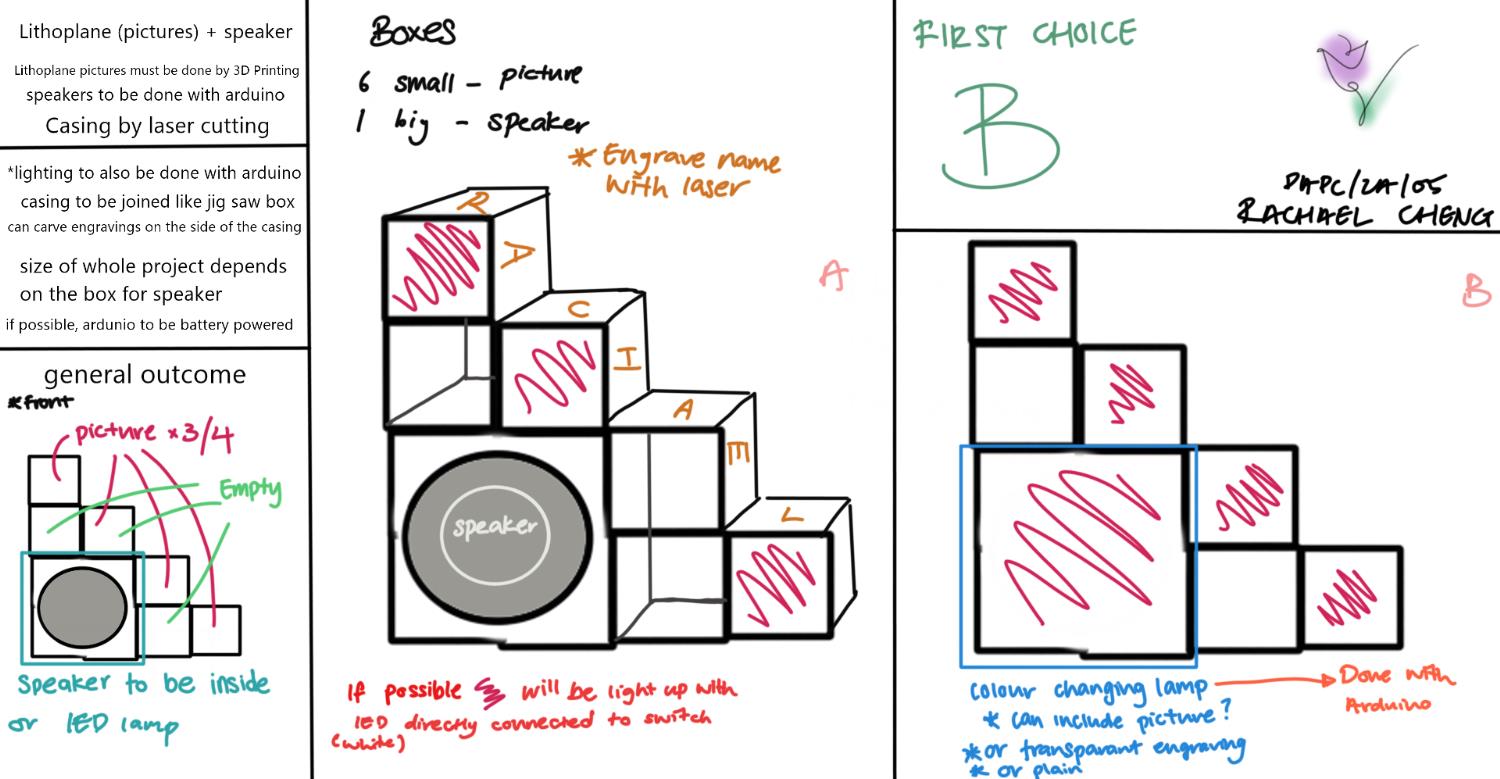 Lithoplane (pictures) + speaker
Lithoplane pictures must be done by 3D Printing
speakers to be done with arduino
Casing by laser cutting
*lighting to also be done with arduino
casing to be joined like jig saw box
can carve engravings on the side of the casing
size of whole project depends
on the box for speaker
if possible, ardunio to be battery powered
general outcome
*front
picture x3/4
Empty
Speaker to be inside
or LED lamp
Boxes
6 small - picture
1 big - speaker
* Engrave name
with laser
R
A
C
I
A
E
L
A
speaker
If possible will be light up with
LED directly connected to switch
(white)
FIRST CHOICE
B
DAPC/2A/05
RACHAEL CHENG
B
colour changing lamp
Done with
Arduino
* can include picture?
* or transparant engraving
* or plain